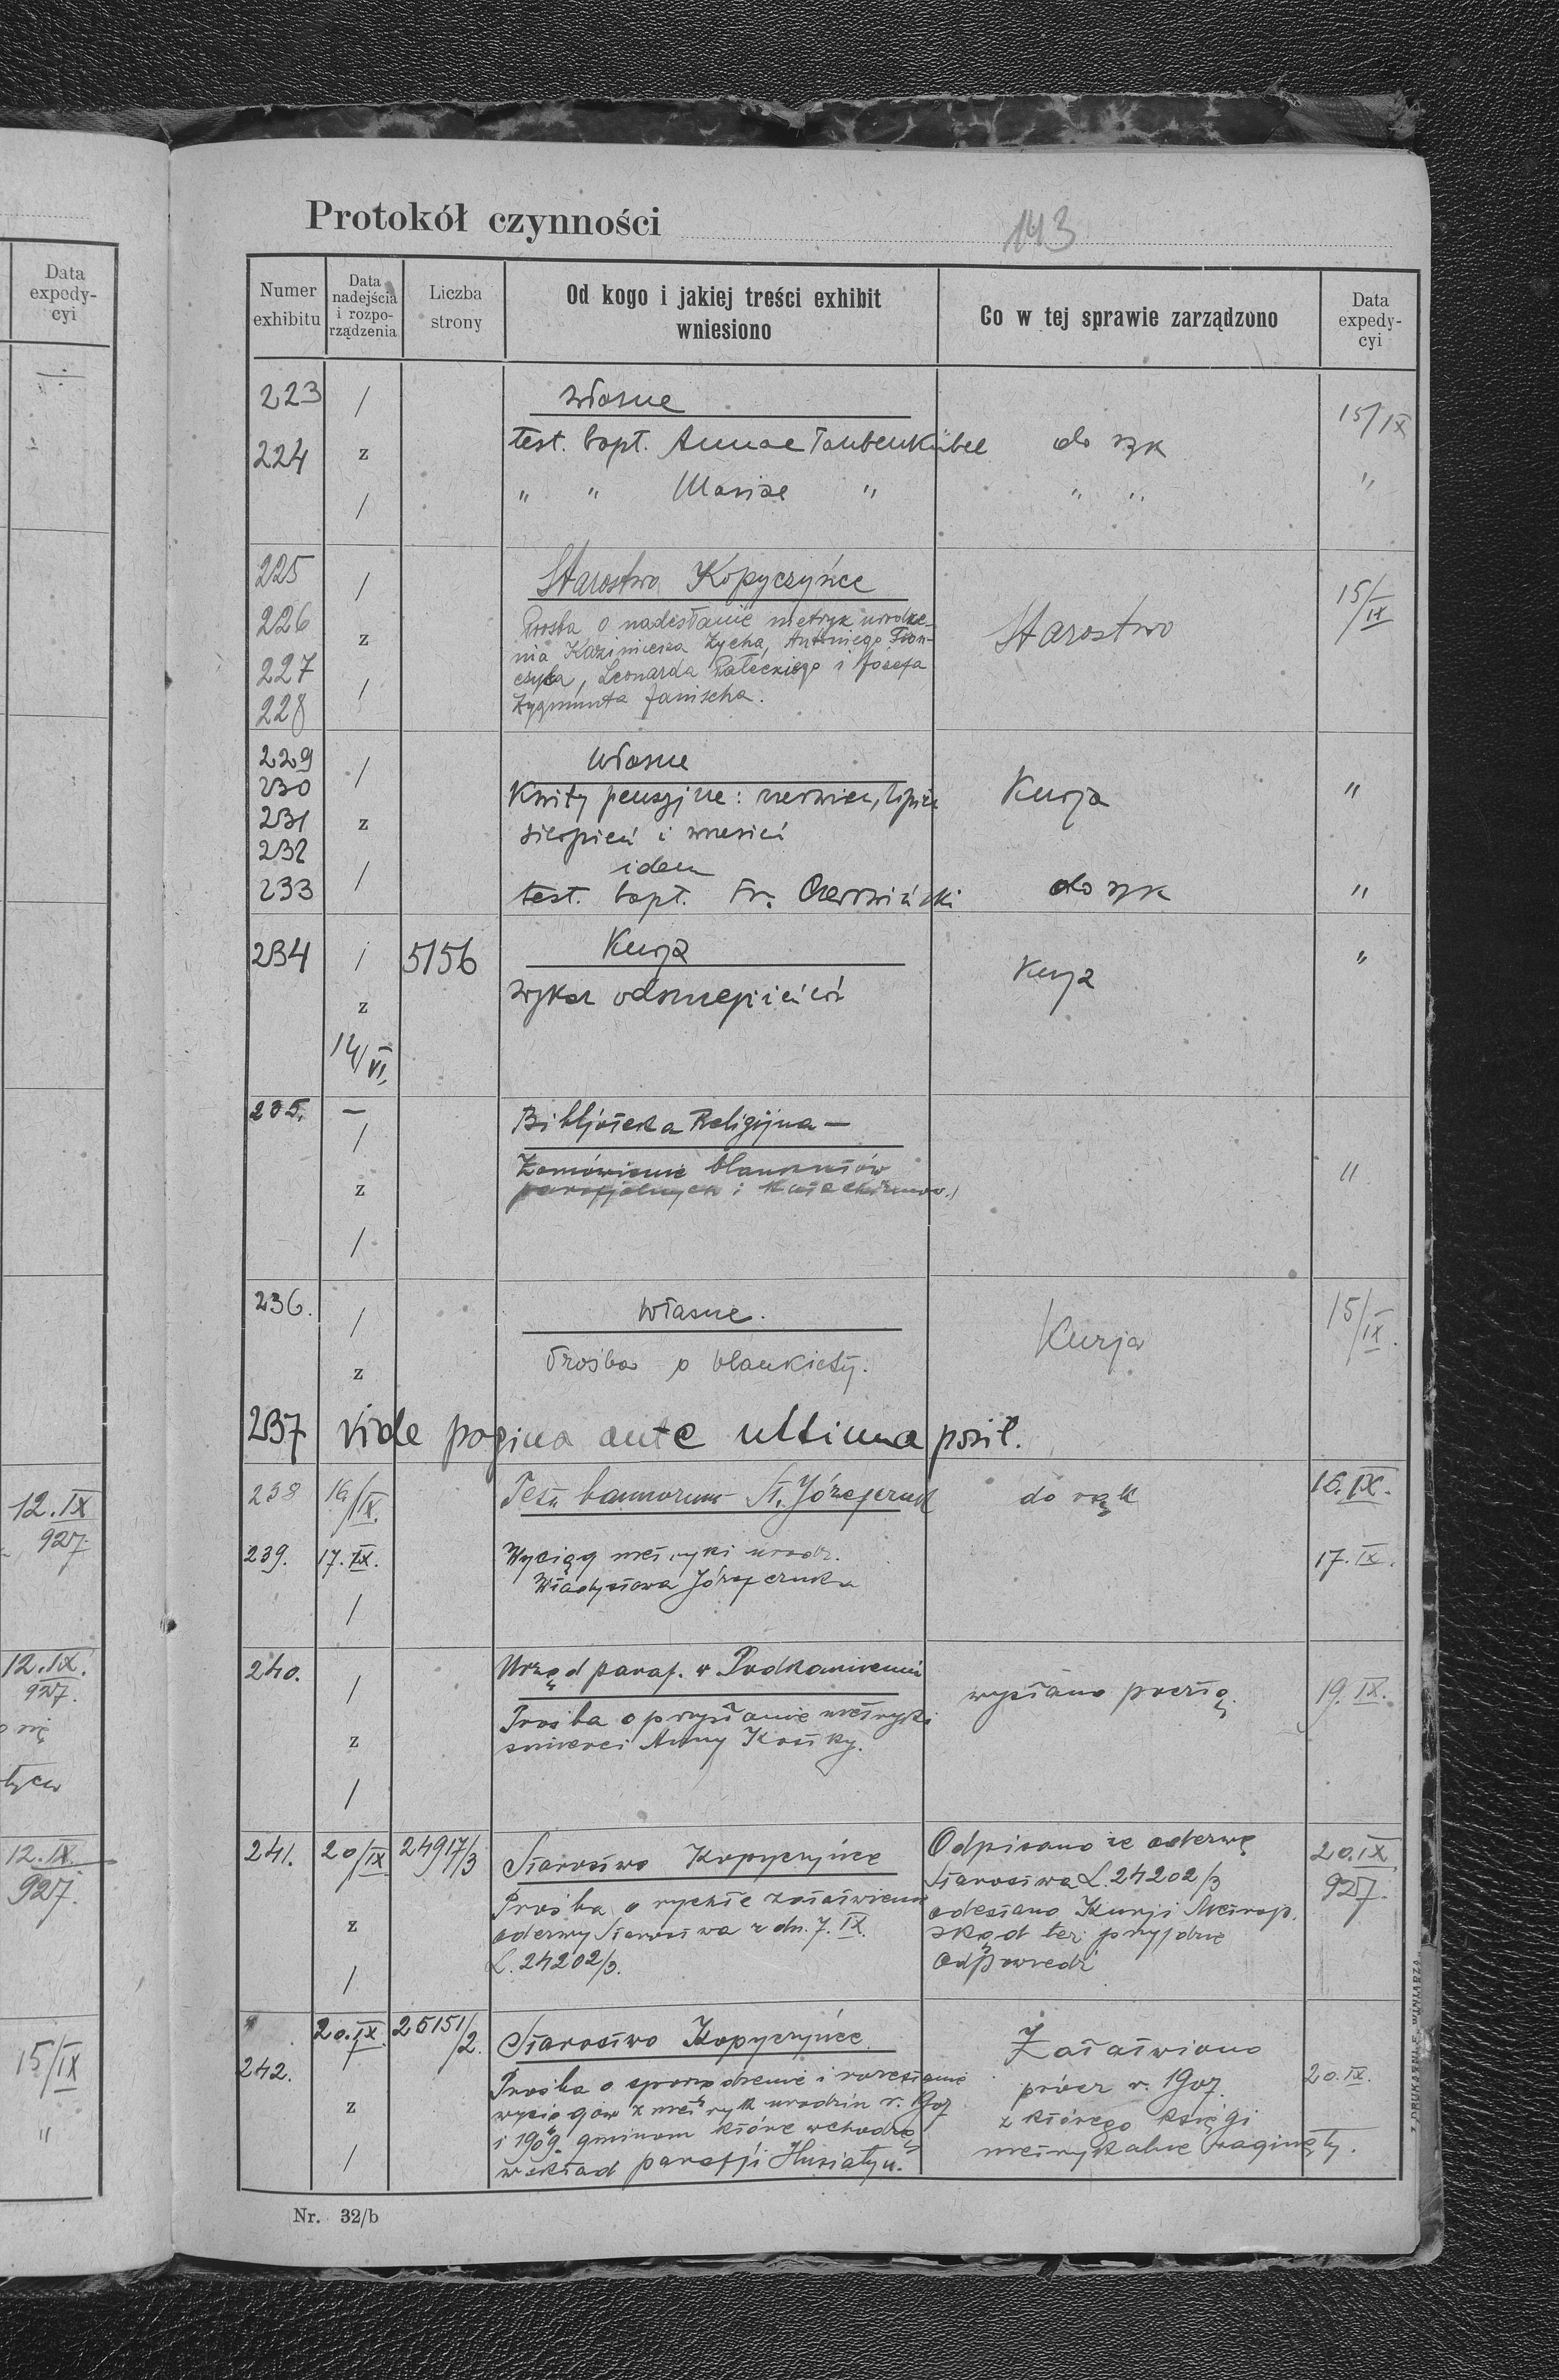 Protokół czynności
143
Data
expedy-
cyi
Numer
exhibitu
Data
nadejścia
i rozpo-
rządzenia
Liczba
strony
Od kogo i jakiej treści exhibit
wniesiono
Co w tej sprawie zarządzono
Data
expedy-
cyi
223 / własne 15/IX
224 z test. bapt. Annae Taubenkübel do rąk
/ " " Mariae " " " "
225 / Starostwo Kopyczyńce 15/IX
226 z Prośba o nadesłanie metryk urodze-
nia Kazimierza Zycha, Antoniego Fran- Starostwo
227 / czyka, Leonarda Pałeckiego i Józefa
228 Zygmunta Janischa.
229 / własne
230 Kwity pensyjne: czerwiec, lipiec Kurja "
231 z sierpień i wrzesień
232 idem
233 / test. bapt. Fr. Czerwiński do rąk "
234 / 5156 Kurja Kurja "
z wykaz
14/VI.
235. — Bibljoteka Religijna —
/ Zamówienie blankietów
z parafjalnych i katechizmów. "
/
236. / własne. Kurja 15/IX.
z Prośba o blankiety.
237 vide pagina ante ultima posit.
238 16/IX. Test. bannorum St. Józefczuk do rąk 16.IX.
239. 17.IX. Wyciąg metryki urodz. 17.IX.
/ Władysława Józefczuka
240. / Urząd paraf. w Podkamieniu wysłano pocztą. 19.IX.
z Prośba o przysłanie metryki
śmierci Anny Kośky.
/
241. 20/IX 24917/3 Starostwo Kopyczyńce Odpisano że odezwę 20.IX.
Prośba o rychłe załatwienie Starostwa L.24202/3 927.
z odezwy Starostwa z dn. 7.IX. odesłano Kurji Metrop.
L.24202/3. skąd też przyjdzie
/ odpowiedź
242. 20.IX. 25151/2. Starostwo Kopyczyńce Załatwiono
/ Prośba o sporządzenie i rozesłanie prócz r. 1907. 20.IX.
z wyciągów z metryk urodzin r. 1907 z którego księgi
i 1909. gminom które wchodzą metrykalne zaginęły.
/ w skład parafji Husiatyn.
12.IX
927.
12.IX.
927.
12.IX.
927.
15/IX
"
Nr. 32/b